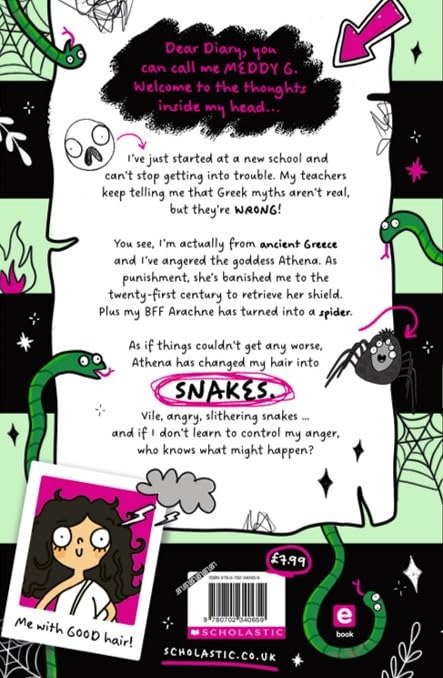 Dear Diary, you
can call me MEDDY G.
Welcome to the thoughts
inside my head...
I've just started at a new school and
can't stop getting into trouble. My teachers
keep telling me that Greek myths aren't real,
but they're WRONG!
You see, I'm actually from ancient Greece
and I've angered the goddess Athena. As
punishment, she's banished me to the
twenty-first century to retrieve her shield.
Plus my BFF Arachne has turned into a spider.
As if things couldn't get any worse,
Athena has changed my hair into
SNAKES.
Vile, angry, slithering snakes ...
and if I don't learn to control my anger,
who knows what might happen?
Me with GOOD hair!
£7.99
ISBN 978-0-702-34065-9
9 780702 340659
SCHOLASTIC
SCHOLASTIC.CO.UK
e
book